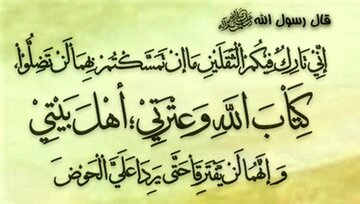 قال رسول الله ﷺ
إِنِّي تَارِكٌ فِيكُمُ الثَّقَلَيْنِ مَا إِنْ تَمَسَّكْتُمْ بِهِمَا لَنْ تَضِلُّوا،
كِتَابَ اللهِ وَعِتْرَتِي؛ أَهْلَ بَيْتِي
وَإِنَّهُمَا لَنْ يَفْتَرِقَا حَتَّى يَرِدَا عَلَيَّ الْحَوْضَ